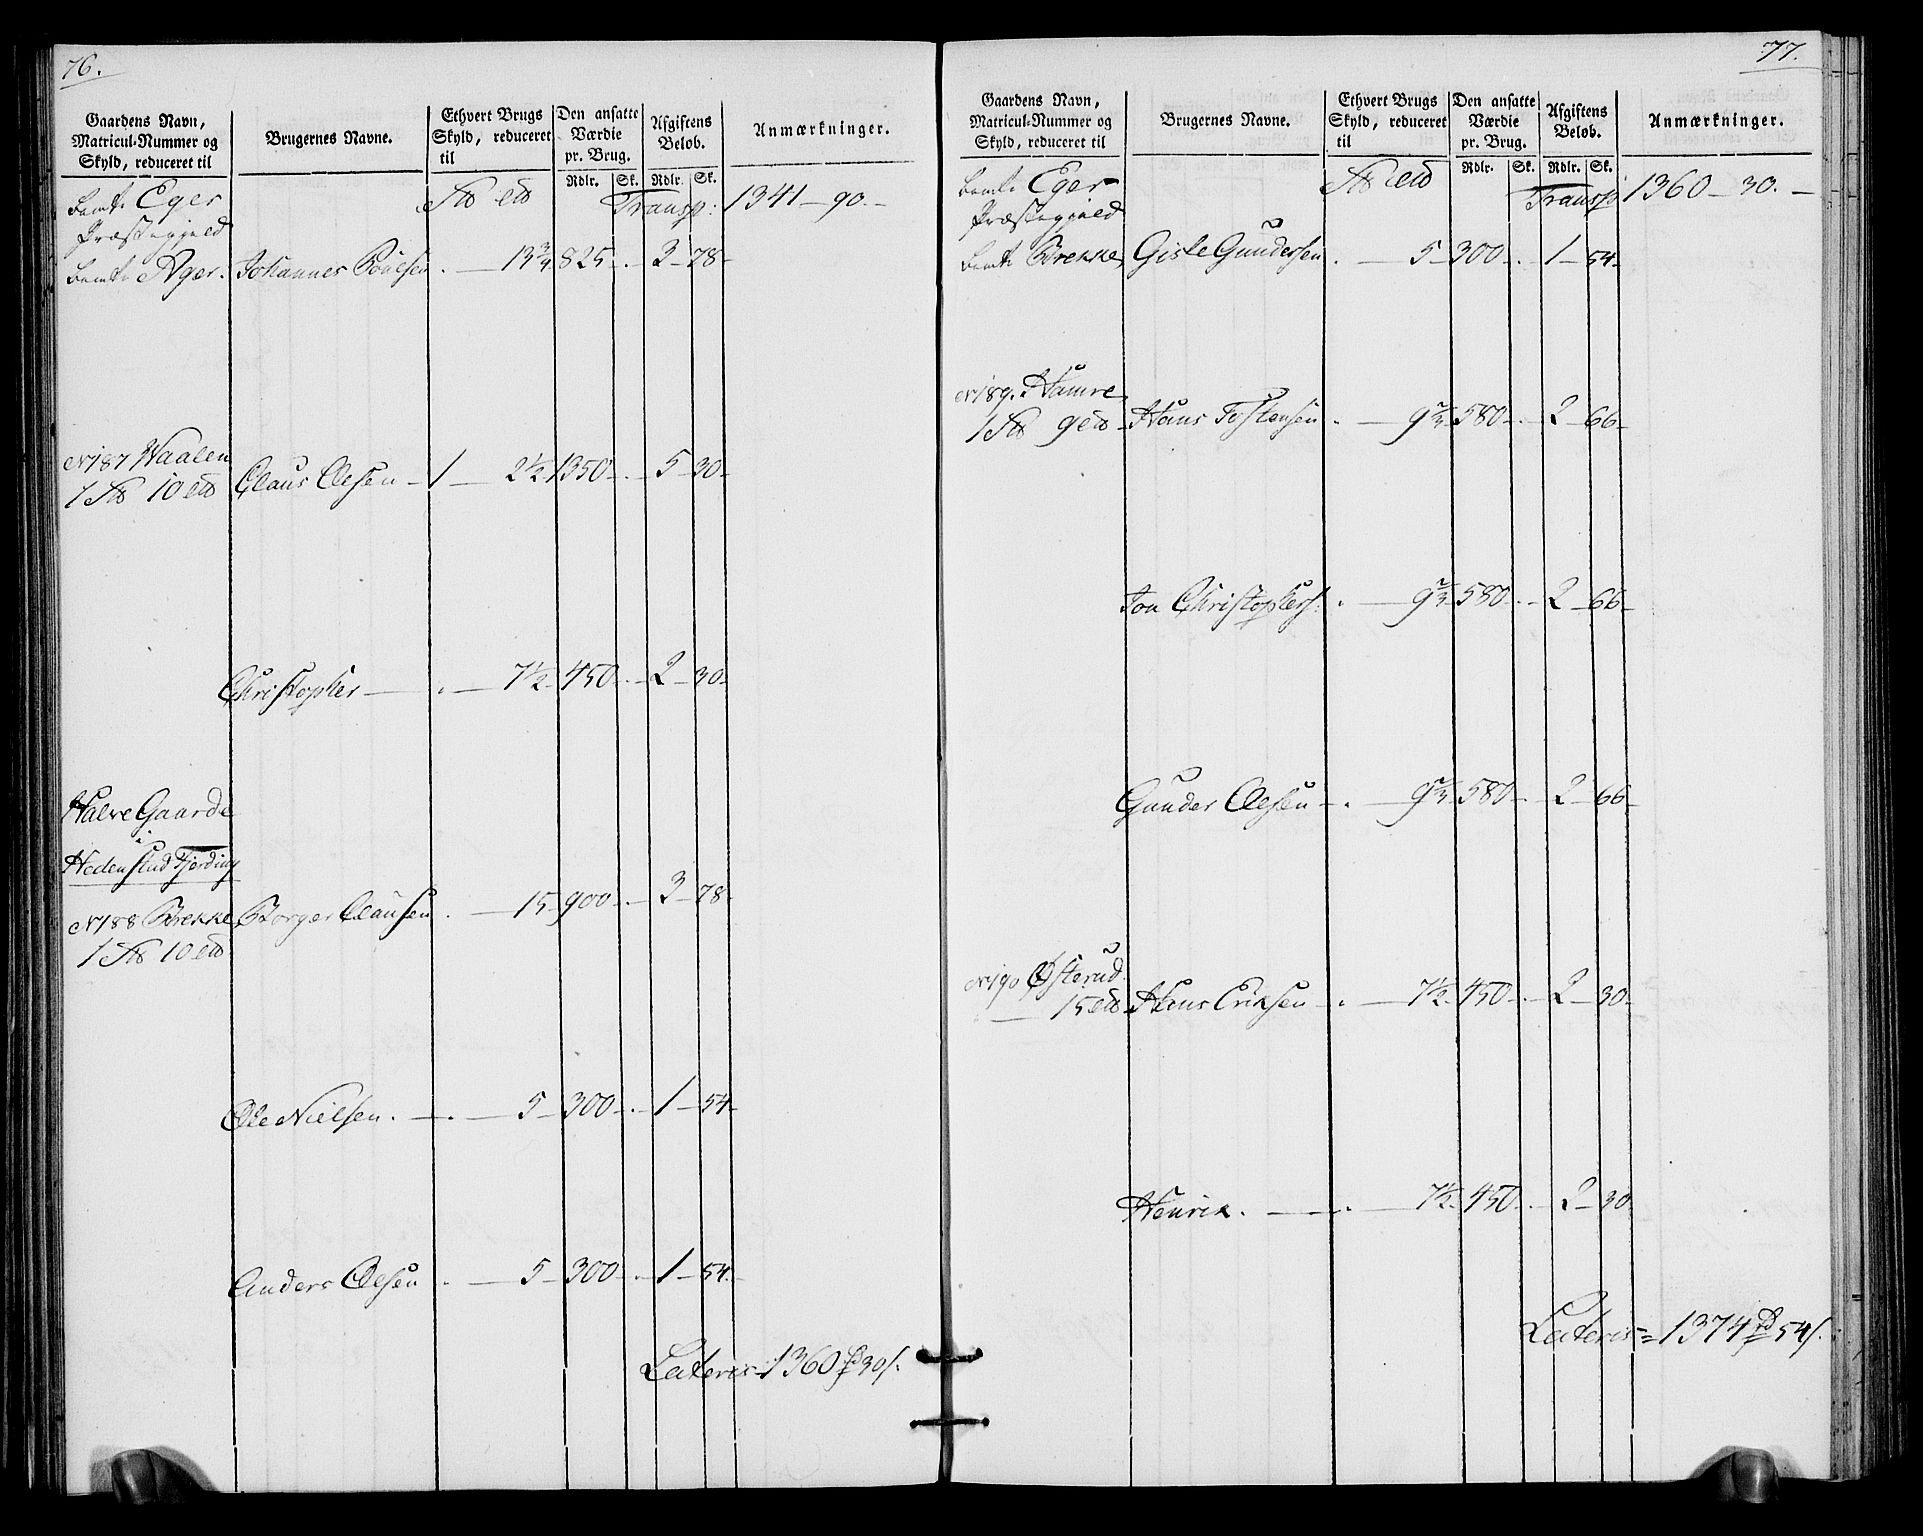 76.
Gaardens Navn, Matricul-Nummer og Skyld, reduceret til
Brugernes Navne.
Ethvert Brugs Skyld, reduceret til
Den ansatte Værdie pr. Brug.
Afgiftens Beløb.
Anmærkninger.
Rdlr. Sk. Rdlr. Sk.
Eger Transp: 1341 - 90. -
Præstegjeld
Ager. Johannes Poulsen . - 13 3/4 825 - . - 3 - 78 -
No 187 Haalen Claus Olesen - 1 - 2 1/2 1350 - . - 5 - 30 -
1 10
Christopher - . - 7 1/2 - 450 - . - 2 - 30 -
Halve Gaarde
i
Hedenstad Fjerding
No 188 Brekke Borger Clausen . - 15 - 900 - . - 3 - 78 -
1 10
Ole Nielsen . - . - 5 - 300 - . - 1 - 54 -
Anders Olesen . - 5 - 300 - . - 1 - 54 -
Lateris - 1360 30
77.
Gaardens Navn, Matricul-Nummer og Skyld, reduceret til
Brugernes Navne.
Ethvert Brugs Skyld, reduceret til
Den ansatte Værdie pr. Brug.
Afgiftens Beløb.
Anmærkninger.
Rdlr. Sk. Rdlr. Sk.
Eger Transp 1360 - 30. -
Præstegjeld
Brekke Gisle Gundersen . - 5 - 300 - . - 1 - 54 -
No 189. Hamre
1 9 Hans Tostensen . - 9 2/3 - 580 - . - 2 - 66 -
Jon Christophers: . - 9 2/3 - 580 - . - 2 - 66 -
Gunder Olesen - . - 9 2/3 - 580 - . - 2 - 66 -
No 190 Østerud
15 Hans Eriksen - . - 7 1/2 - 450 - . - 2 - 30 -
Henrik . - . - 7 1/2 - 450 - . - 2 - 30
Lateris = 1374 54